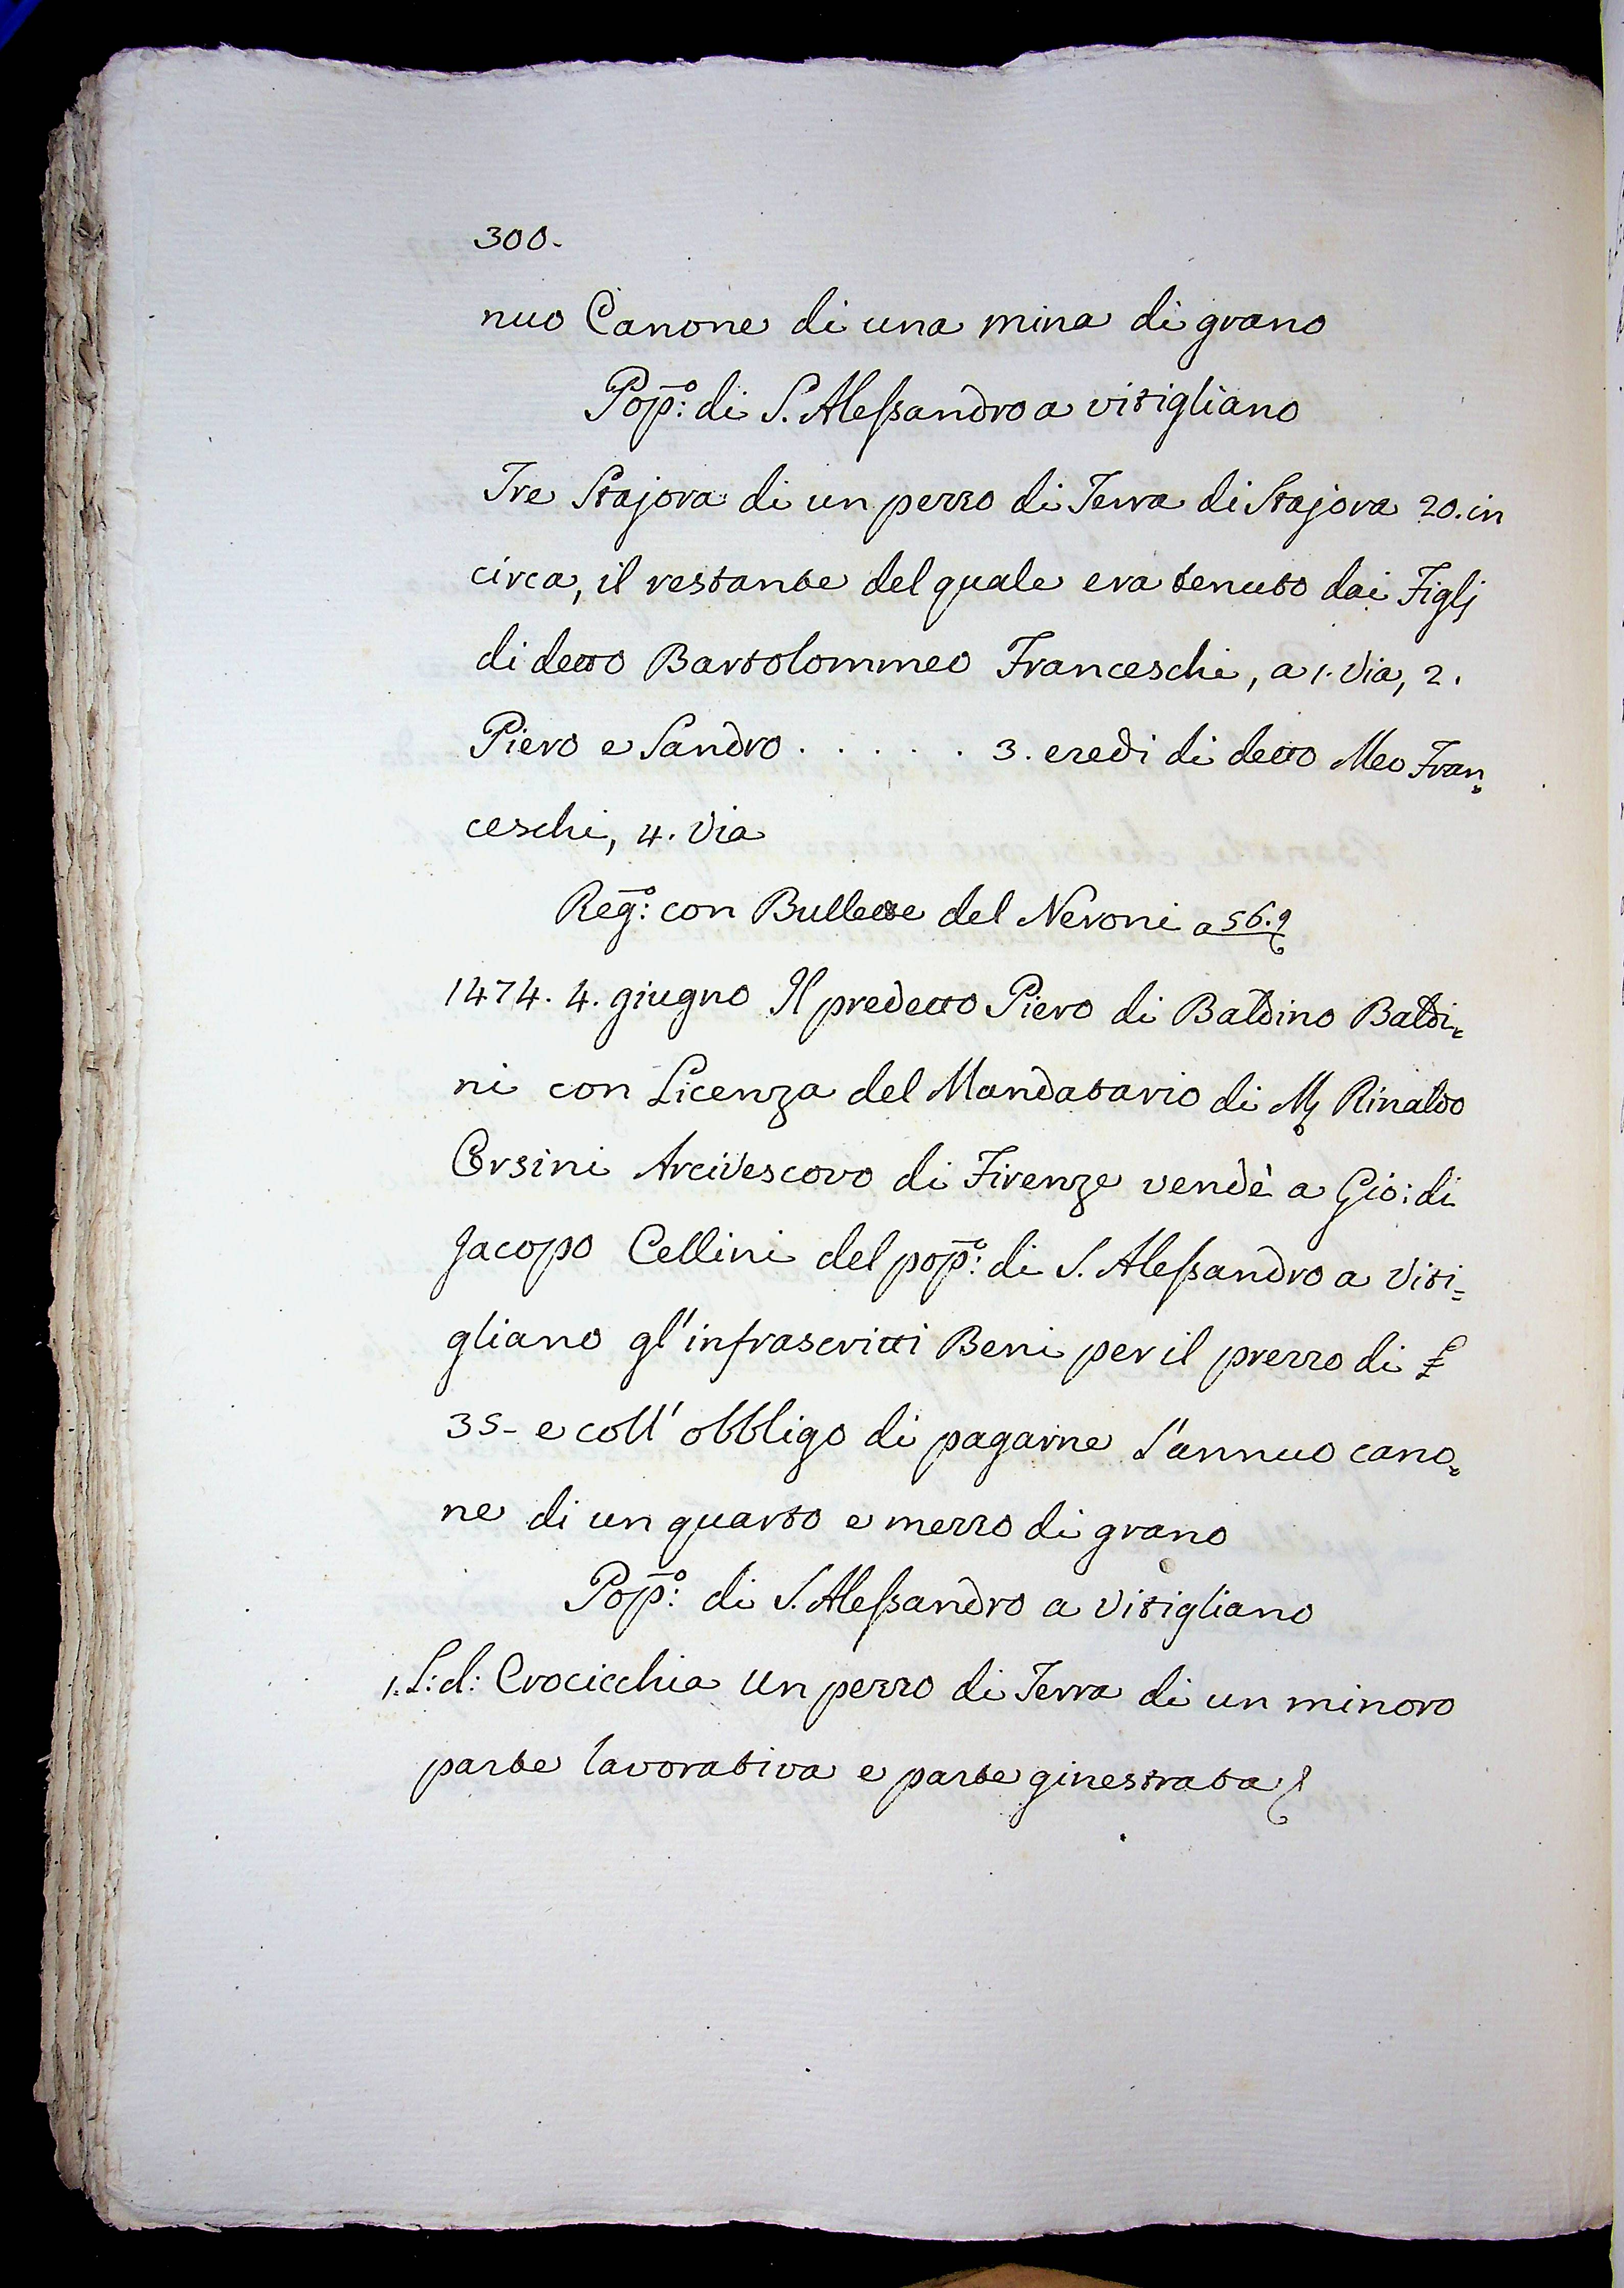 300.
nuo Canone di una mina di grano
Pop̄.º: di S. Alessandro a vitigliano
Tre Stajora di un pezzo di Terra di Stajora 20. in
circa, il restante del quale era tenuto dai Figlj
di detto Bartolommeo Franceschi, a 1. Via, 2.
Piero e Sandro . . . . . . 3. eredi di detto Meo Fran=
ceschi, 4. Via
Reg̅º: con Bullette del Neroni a 56.
1474. 4. giugno Il predetto Piero di Baldino Baldi=
ni con Licenza del Mandatario di M. Rinaldo
Orsini Arcivescovo di Firenze vendè a Gio: di
Jacopo Cellini del pop̄º: di S. Alessandro a Viti=
gliano gl'infrascritti Beni per il prezzo di £
35- e coll' obbligo di pagarne l'annuo cano=
ne di un quarto e mezzo di grano
Pop̄º: di S. Alessandro a Vitigliano
1. L: d: Crocicchia Un pezzo di Terra di un minoro
parte lavorativa e parte ginestrata